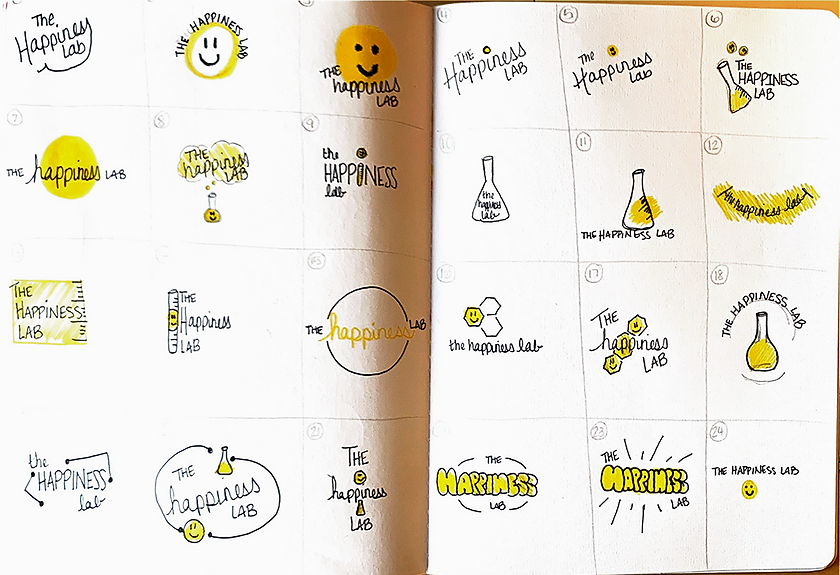 The
Happiness
Lab
THE HAPPINESS LAB
THE
happiness
LAB
4
THE
Happiness
LAB
5
The
Happiness
Lab
6
THE
HAPPINESS
LAB
7
THE happiness LAB
8
THE
happiness
LAB
9
the
HAPPINESS
lab
10
the
happiness
lab
11
THE HAPPINESS LAB
12
the happiness lab
THE
HAPPINESS
LAB
THE
Happiness
LAB
15
THE happiness LAB
16
the happiness lab
17
THE
happiness
LAB
18
THE HAPPINESS LAB
the
HAPPINESS
lab
THE
happiness
LAB
21
THE
happiness
LAB
THE
HAPPINESS
LAB
23
THE
HAPPINESS
LAB
24
THE HAPPINESS LAB